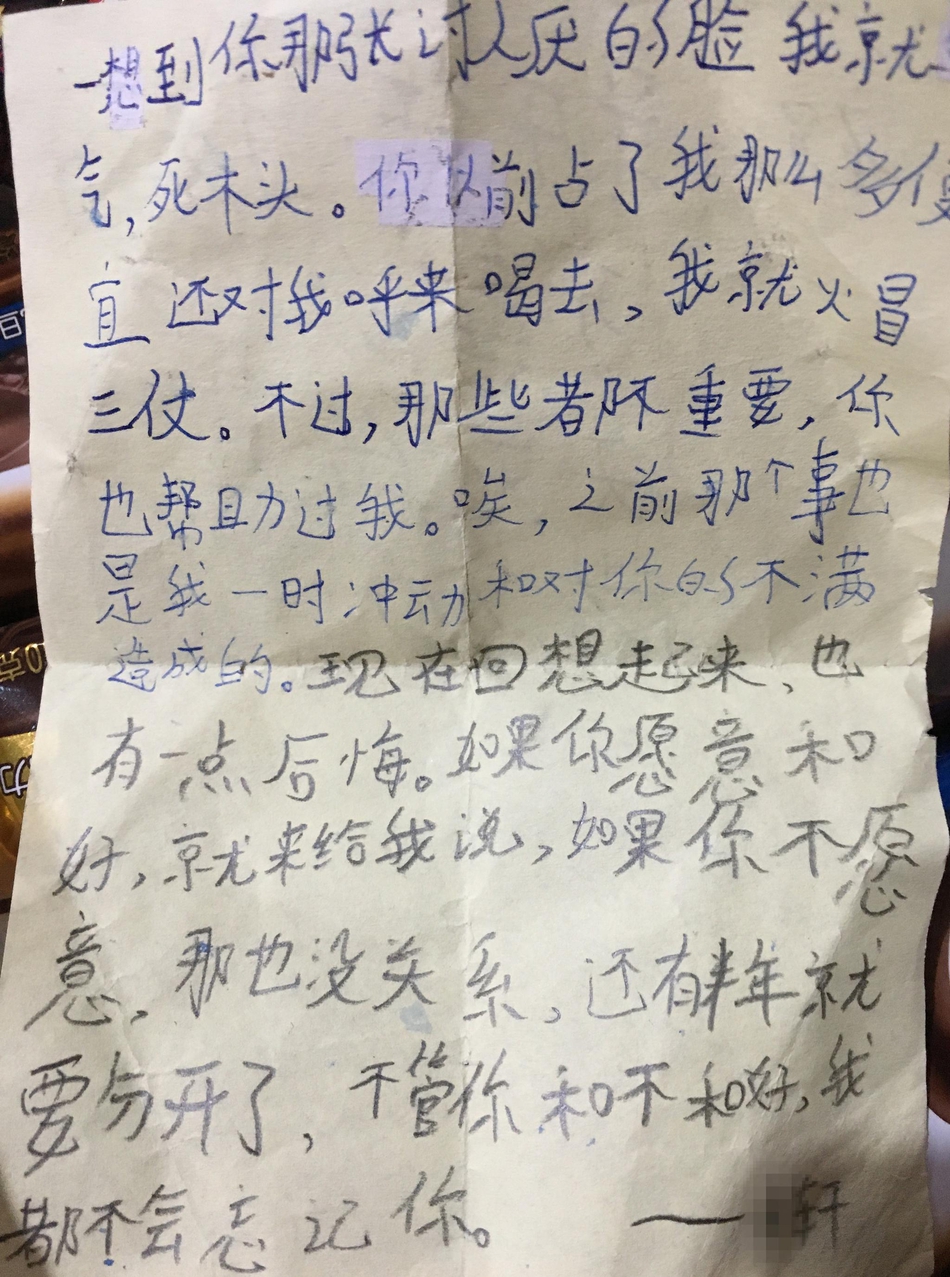 一想到你那张讨人厌的脸我就
气,死木头。你以前占了我那么多便
宜还对我呼来喝去,我就火冒
三仗。不过,那些都不重要,你
也帮助过我。唉,之前那个事也
是我一时冲动和对你的不满
造成的。现在回想起来、也
有一点后悔。如果你愿意和
好,就来给我说,如果你不愿
意,那也没关系,还有半年就
要分开了,不管你和不和好,我
都不会忘记你。
——轩